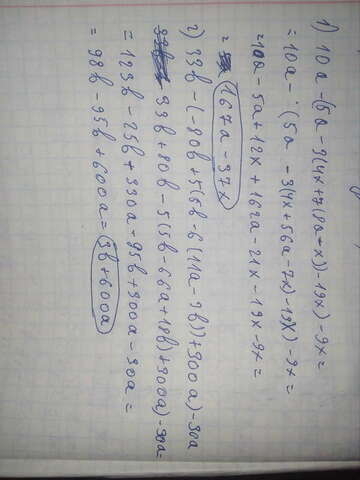 1) 10a - (5a - 3(4x+7(8a+x)) - 19x) - 9x =
= 10a - (5a - 3(4x + 56a - 7x) - 19x) - 9x =
= 10a - 5a + 12x + 162a - 21x - 19x - 9x =
= 167a - 37x
2) 33b - (-80b + 5(5b - 6(11a - 9b)) + 300a) - 30a
33b + 80b - 5(5b - 66a + 18b) + 300a) - 30a =
= 123b - 25b + 330a - 95b + 300a - 30a =
= 98b - 95b + 600a = 3b + 600a